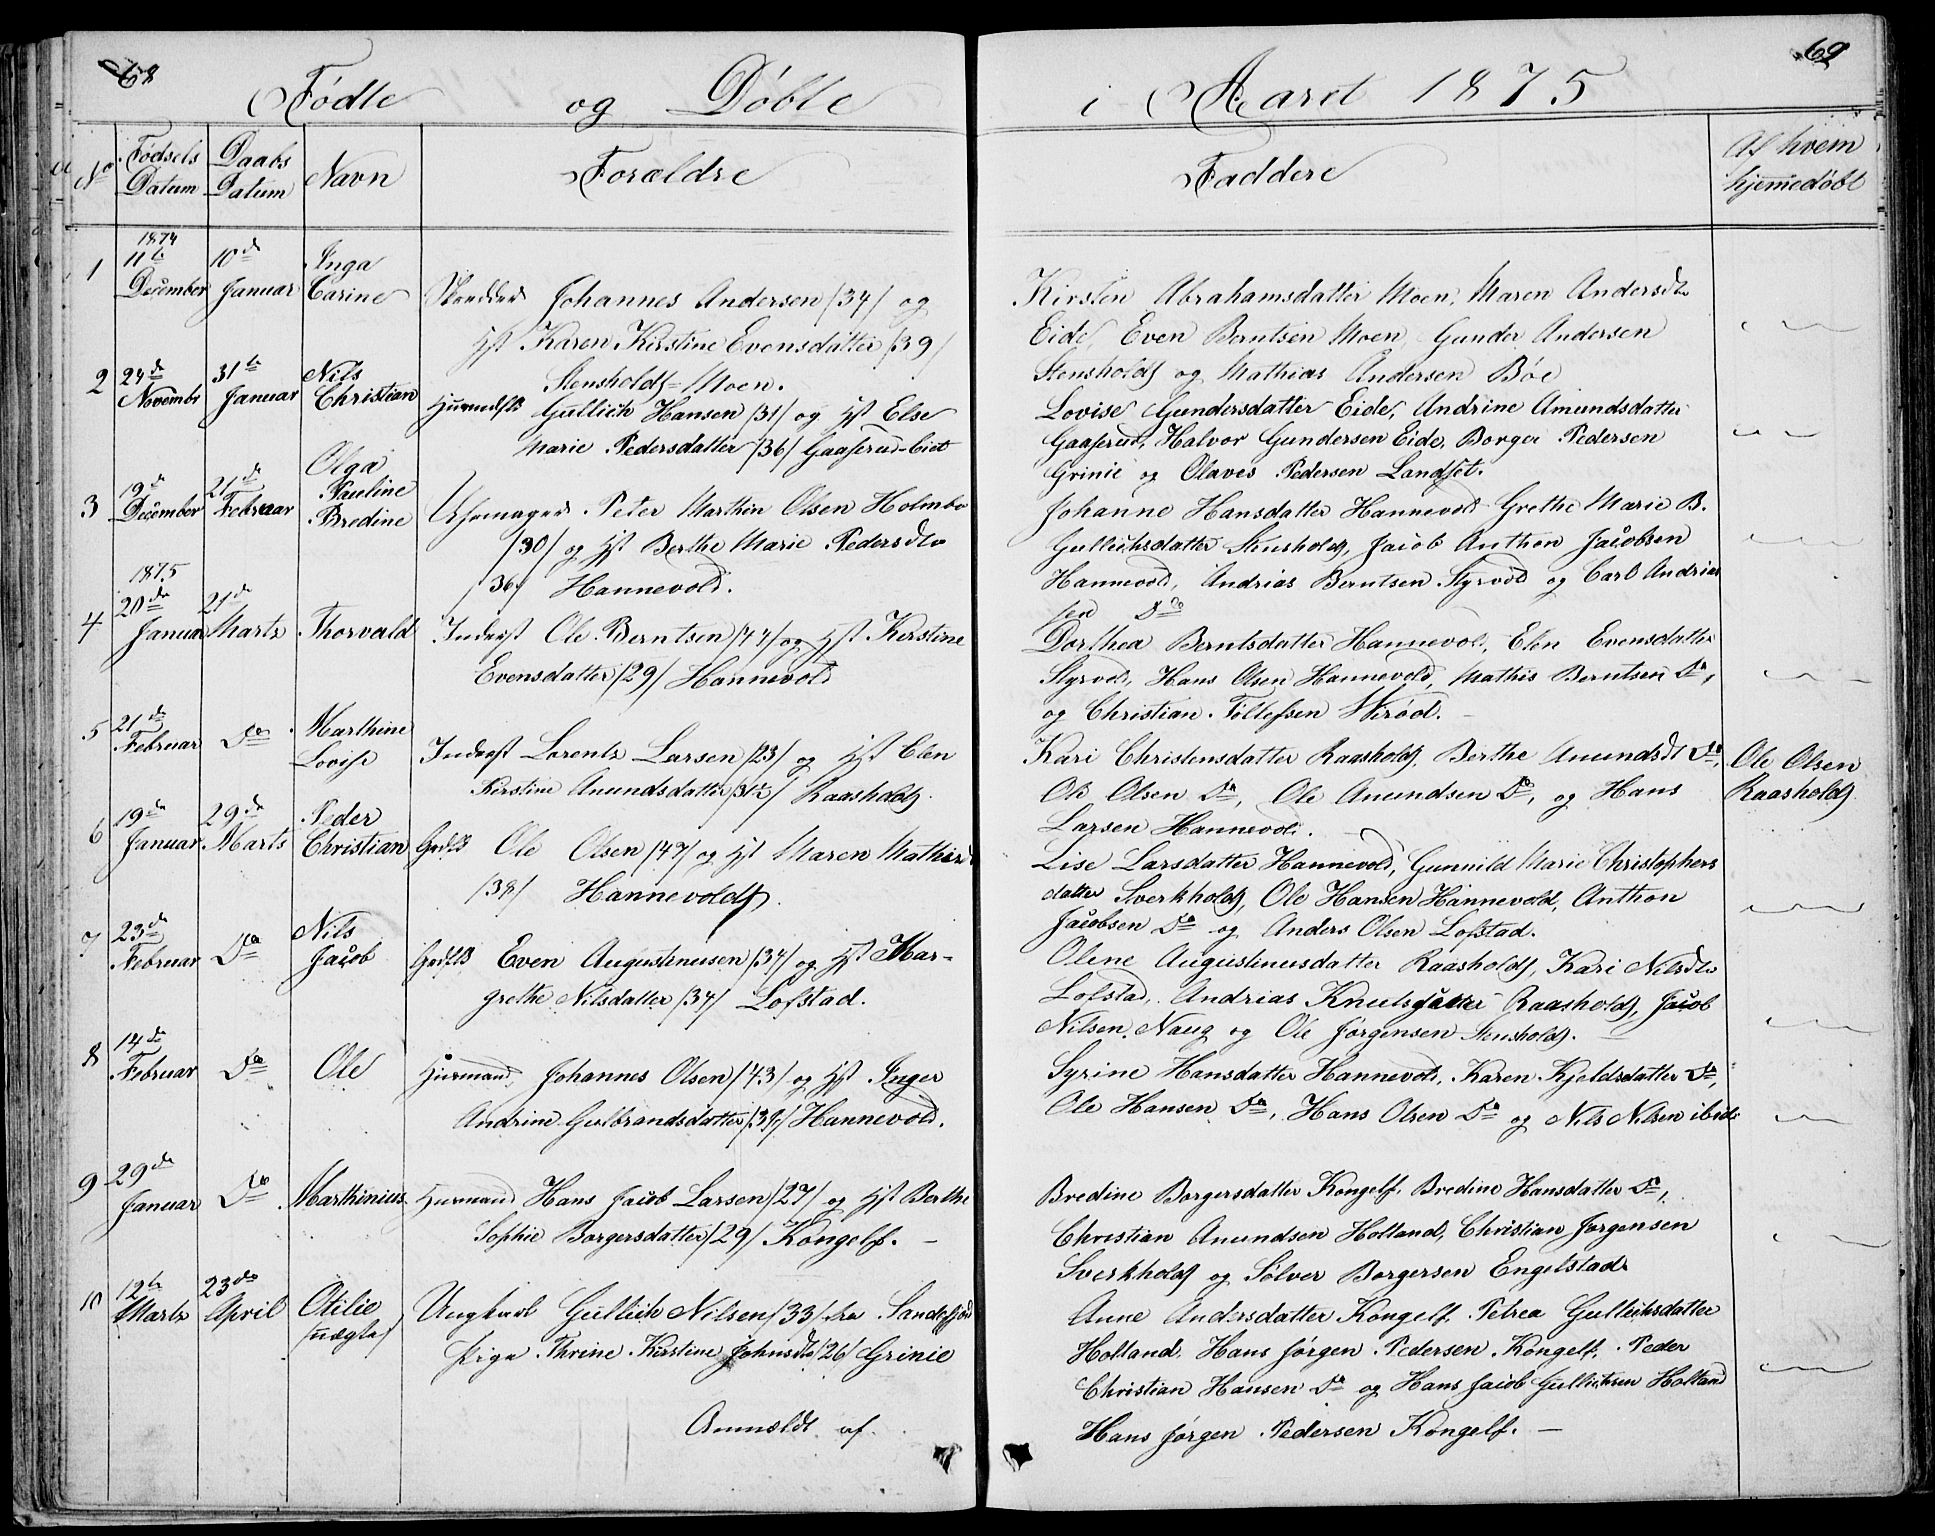 68
Fødte og Døbte
No
Fødsels
Datum
Daabs
Datum
Navn
Forældre
1
1874
11te
December
10de
Januar
Inga
Carine
Skrædder Johannes Andersen /34/ og
Hst Karen Kirstine Evensdatter /39/
Stensholdt-Moen.
2
24de
Novembr
31te
Januar
Nils
Christian
Gullich Hansen /31/ og Hst Else
Marie Pedersdatter /36/ Gaaserud-eiet
3
19de
December
21de
Februar
Olga
Pauline
Bredine
Uhrmager Peter Marthin Olsen Holmbo
/30/ og Hst Berthe Marie Pedersdtr
/36/ Hannevold.
4
1875
20de
Januar
21de
Marts
Thorvald
Inderst Ole Berntsen /44/ og Hst Kirstine
Evensdatter /29/ Hannevold
5
21de
Februar
Do
Marthine
Lovise
Inderst Lorentz Larsen /23/ og Hst Elen
Kirstine Anundsdatter /31½/ Raasholdt
6
19de
Januar
29de
Marts
Peder
Christian
Ole Olsen /47/ og Hst Maren Mathisd
/38/ Hannevoldt.
7
23de
Februar
Do
Nils
Jacob
Even Augustinusen /34/ og Hst Mar-
grethe Nilsdatter /34/ Lofstad.
8
14de
Februar
Do
Ole
Huusmand Johannes Olsen /43/ og Hst Inger
Andrine Gulbrandsdatter /39/ Hannevold.
9
29de
Januar
Do
Marthinius
Huusmand Hans Jacob Larsen /27/ og Hst Berthe
Sophie Borgersdatter /29/ Kongelf. –
10
12te
Marts
23de
April
Otilie
/uægte/
Ungkarl Gullich Nilsen /33/ fra Sandefjord
Pige Thrine Kirstine Johnsdtr /26/ Grinie
Anmeldt af.
69
i Aaret 1875
Faddere
Af hvem
hjemmedøbt
Kirsten Abrahamsdatter Moen, Maren Andersdtr
Eide, Even Berntsen Moen, Gunder Andersen
Stensholdt og Mathias Andersen Bøe
Lovise Gundersdatter Eide, Andrine Amundsdatter
Gaaserud, Halvor Gundersen Eide, Borger Pedersen
Grinie og Olaves Pedersen Landset.
Johanne Hansdatter Hannevold Grethe Marie B.
Gullichsdatter Stensholdt, Jacob Anthon Jacobsen
Hannevold, Andrias Berntsen Styrvold og Carl Andrias
sen Do
Dorthea Berntsdatter Hannevold, Elen Evensdatter
Styrvold, Hans Olsen Hannevold, Mathis Berntsen Do,
og Christian Tollefsen Wirød. –
Kari Christensdatter Raasholdt, Berthe Anundsdt Do,
Ole Olsen Do, Ole Anundsen Do, og Hans
Larsen Hannevold.
Ole Olsen
Raasholdt
Lise Larsdatter Hannevold, Gunnild Marie Christophers
datter Sverkholdt, Ole Hansen Hannevold, Anthon
Jacobsen Do og Anders Olsen Lofstad.
Olene Augustinusdatter Raasholdt, Kari Nilsdtr
Lofstad, Andrias Knutsdatter Raasholdt, Jacob
Nilsen Naug og Ole Jørgensen Stensholdt.
Syrine Hansdatter Hannevold, Karen Kjeldsdatter Do,
Ole Hansen Do, Hans Olsen Do og Nils Nilsen ibid
Bredine Borgersdatter Kongelf, Bredine Hansdatter Do,
Christian Anundsen Holland, Christian Jørgensen
Sverkholdt og Sølver Borgersen Engelstad
Anne Andersdatter Kongelf, Petrea Gullichsdatter
Holland, Hans Jørgen Pedersen Kongelf, Peder
Christian Hansen Do og Hans Jacob Gullichsen Holland
Hans Jørgen Pedersen Kongelf. –